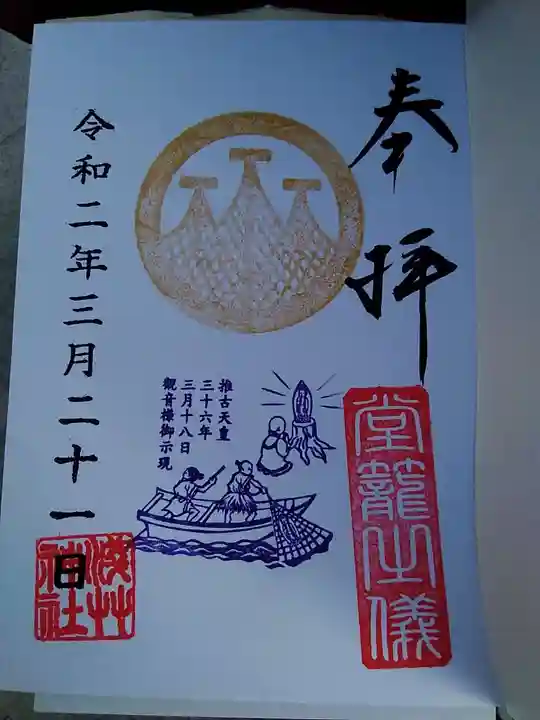 奉拝
堂籠之儀
推古天皇
三十六年
三月十八日
観音様御示現
令和二年三月二十一日
浅草
神社